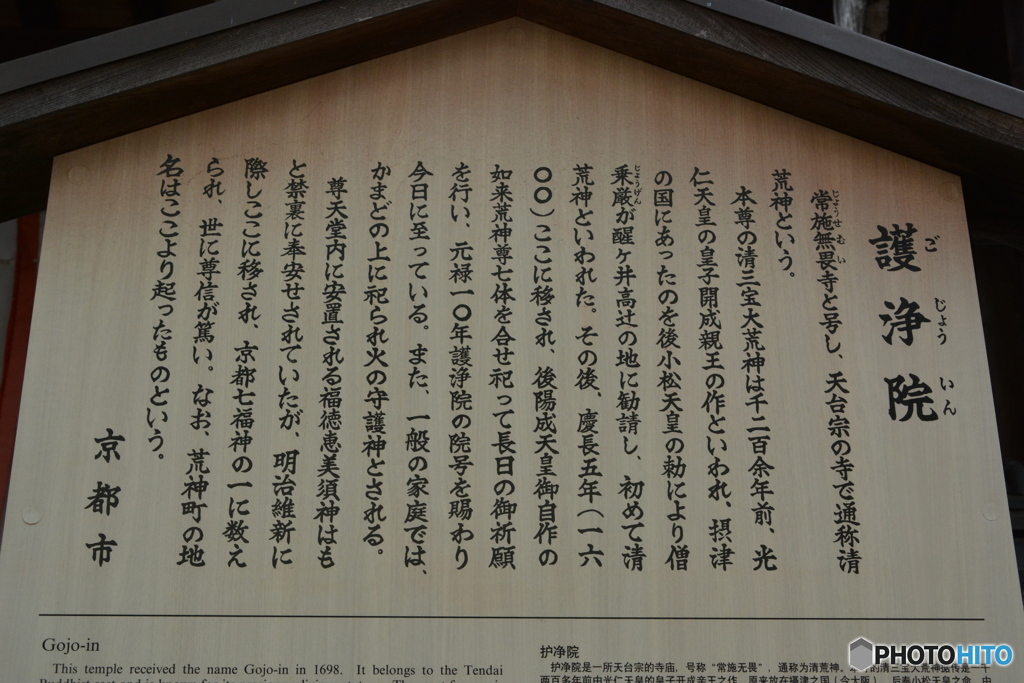 護浄院
ごじょういん
常施無畏寺と号し、天台宗の寺で通称清
じょうせむい
荒神という。
本尊の清三宝大荒神は千二百余年前、光
仁天皇の皇子開成親王の作といわれ、摂津
の国にあったのを後小松天皇の勅により僧
乗厳が醒ヶ井高辻の地に勧請し、初めて清
じょうげん
荒神といわれた。その後、慶長五年(一六
〇〇)ここに移され、後陽成天皇御自作の
如来荒神尊七体を合せ祀って長日の御祈願
を行い、元禄一〇年護浄院の院号を賜わり
今日に至っている。また、一般の家庭では、
かまどの上に祀られ火の守護神とされる。
尊天堂内に安置される福徳恵美須神はも
と禁裏に奉安せされていたが、明治維新に
際しここに移され、京都七福神の一に数え
られ、世に尊信が篤い。なお、荒神町の地
名はここより起ったものという。
京都市
Gojo-in
This temple received the name Gojo-in in 1698. It belongs to the Tendai
护净院
护净院是一所天台宗的寺庙,号称“常施无畏”,通称为清荒神。
PHOTOHITO